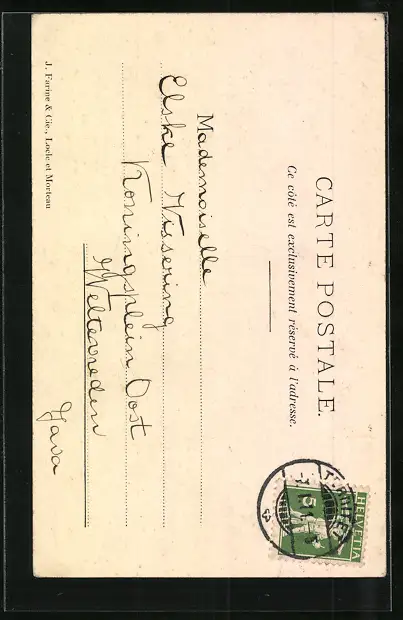 CARTE POSTALE.
Ce côté est exclusivement réservé à l'adresse.
HELVETIA
5
Mademoiselle
Elske Vissering
Koningsplein Oost
Weltevreden
Java
J. Farine & Cie., Locle et Morteau